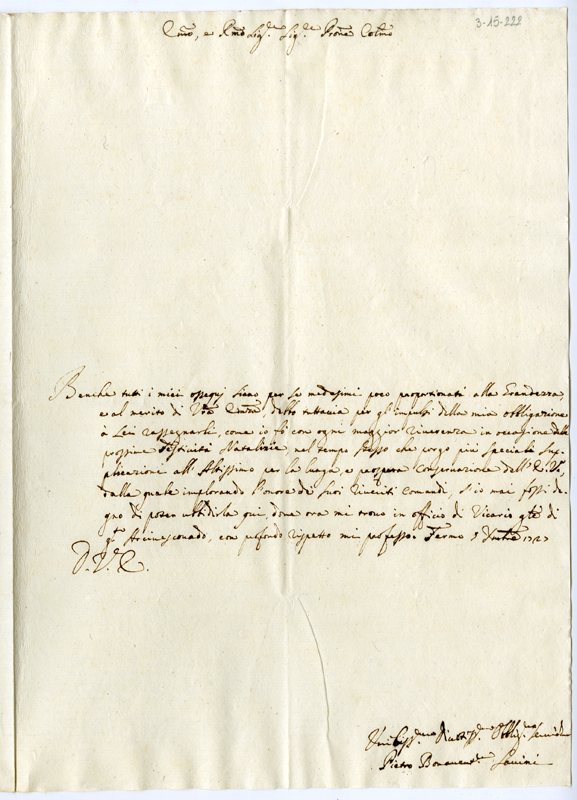 3-15-222
Emo, e Rmo Sig.re Sig.re Prone Colmo
Benche tutti i miei ossequj sieno per se medesimi poco proportionati alla Grandezza,
e al merito di Vra Emza, debbo tuttavia per gl'impulsi della mia obbligazione
à Lei rassegnarli, come io fò con ogni maggior riverenza in occasione delle
prossime Festività Natalizie, nel tempo stesso che porgo più speciali sup-
plicazioni all'Altissimo per la lunga, e prospera Conservazione dell'E. V.,
dalla quale implorando l'onore de suoi riveriti comandi, s'io mai fossi de-
gno di poter ubbidirla qui, dove ora mi trovo in officio di Vicario gñle di
qto Arcivescovado, con profondo rispetto mi professo. Fermo 9 Xmbre 1727
D. V. E.
Umiliss.mo Divotiss.o Obblig.mo Servidre
Pietro Bonavent.ra Savini